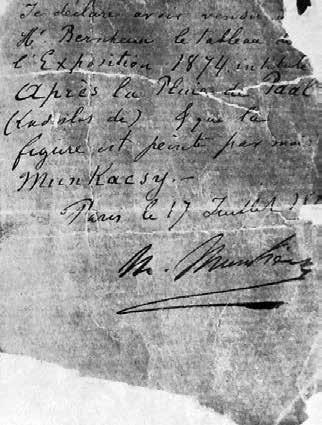 Je déclare avoir vendu à
Mr Bernheim le tableau
l'Exposition 1874 intitulé
Après la Pluie de Paal
(Ladislas de) & que la
figure est peinte par moi
Munkacsy. —
Paris le 17 Juillet
M. Munkacsy